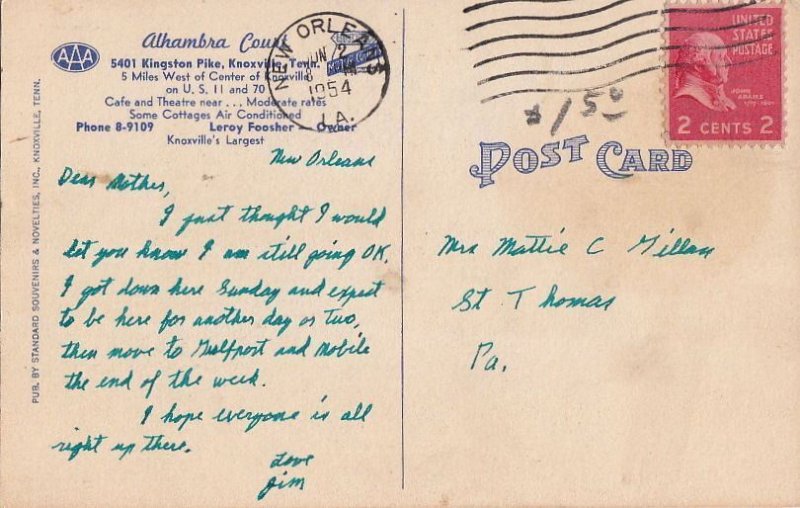 AAA
Alhambra Court
5401 Kingston Pike, Knoxville, Tenn.
5 Miles West of Center of Knoxville
on U. S. 11 and 70
Cafe and Theatre near . . . Moderate rates
Some Cottages Air Conditioned
Phone 8-9109 Leroy Foosher Owner
Knoxville's Largest
PUB. BY STANDARD SOUVENIRS & NOVELTIES, INC., KNOXVILLE, TENN.
NEW ORLEANS
JUN 2
1954
LA.
New Orleans
Dear Mother,
I just thought I would
let you know I am still going OK.
I got down here Sunday and expect
to be here for another day or two,
then move to Gulfport and Mobile
the end of the week.
I hope everyone is all
right up there.
Love
Jim
UNITED
STATES
POSTAGE
JOHN
ADAMS
2 CENTS 2
1 50
POST CARD
Mrs Mattie C Gillan
St Thomas
Pa.